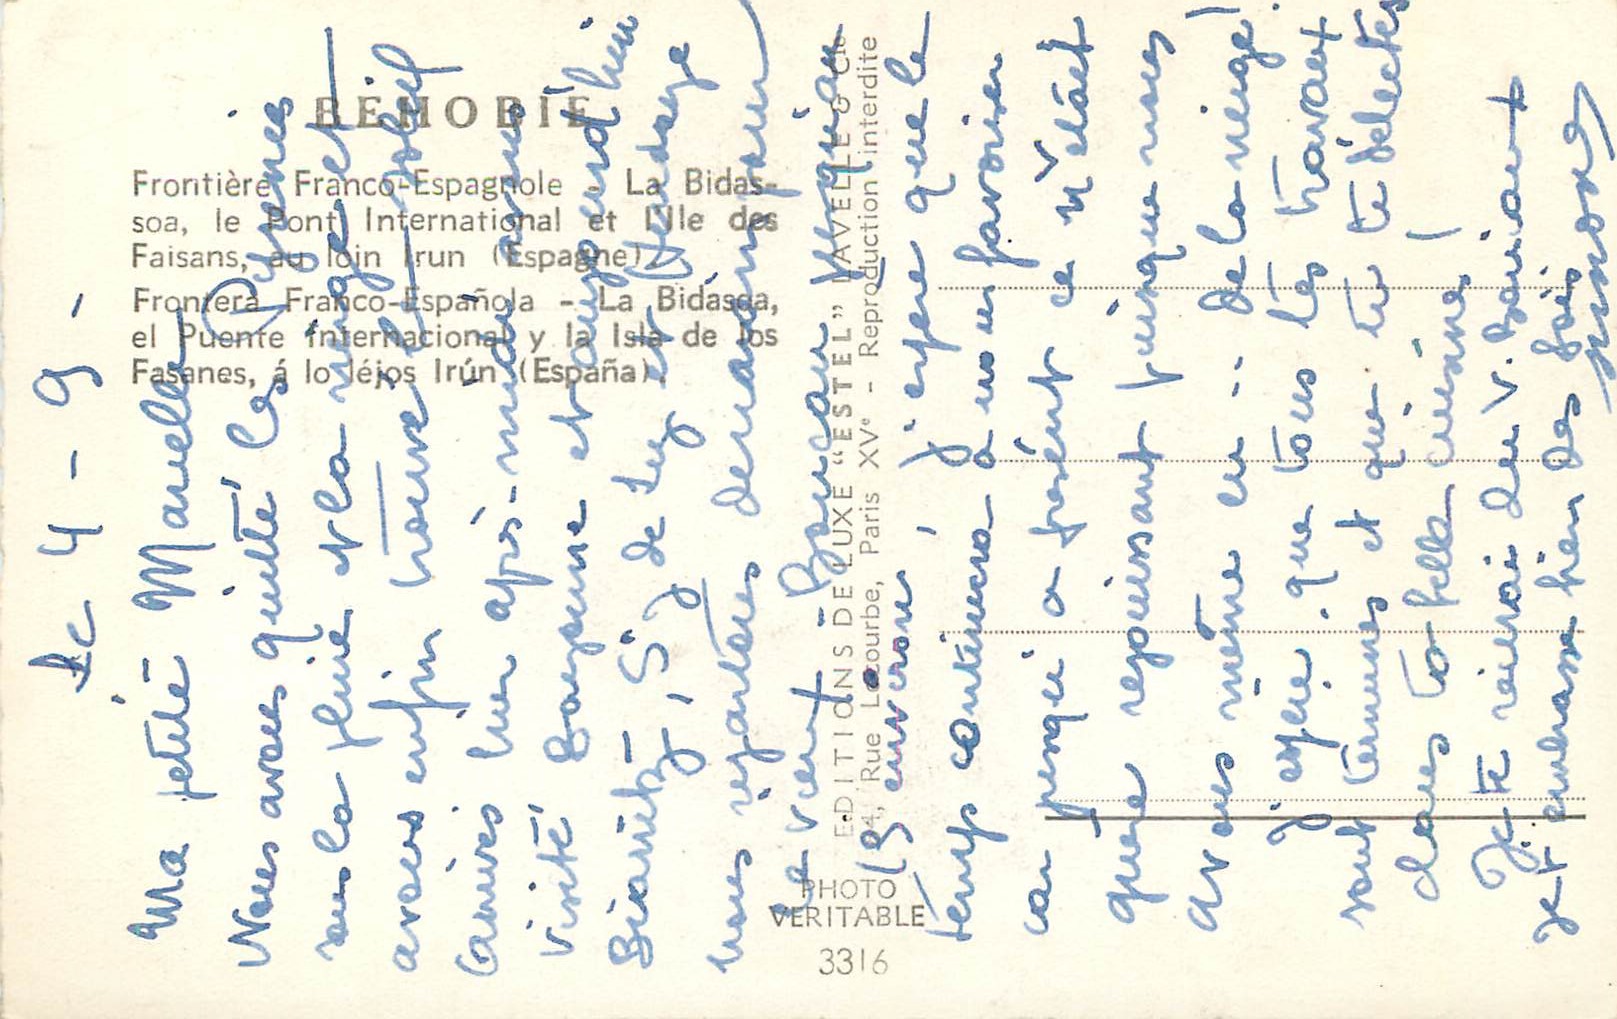 BEHOBIE
Frontière Franco-Espagnole - La Bidas-
soa, le Pont International et l'Ile des
Faisans, au loin Irun (Espagne).
Frontera Franco-Española - La Bidasoa,
el Puente Internacional y la Isla de los
Fasanes, á lo léjos Irún (España).
EDITIONS DE LUXE "ESTEL" LAVELLE & Cie
Rue Lecourbe, Paris XVe - Reproduction interdite
PHOTO
VERITABLE
3316
Le 4 - 9 -
Ma petite Manuella
Nous avons quitté les Pyrénées
sous la pluie et la neige et
avons enfin trouvé le soleil
arrivés hier après-midi avons
visité Bayonne et aujourd'hui
Biarritz, St J de Luz et Hendaye
nous repartons demain pour
le vent
environ, j'espère que le
temps continuera à nous favoriser
car jusqu'à présent ce n'était
guère réjouissant puisque nous
avons même eu .. de la neige!
J'espère que tous tes travaux
sont terminés et que tu te délectes
dans ta belle cuisine!
Je te
et t'embrasse bien des fois
Simone